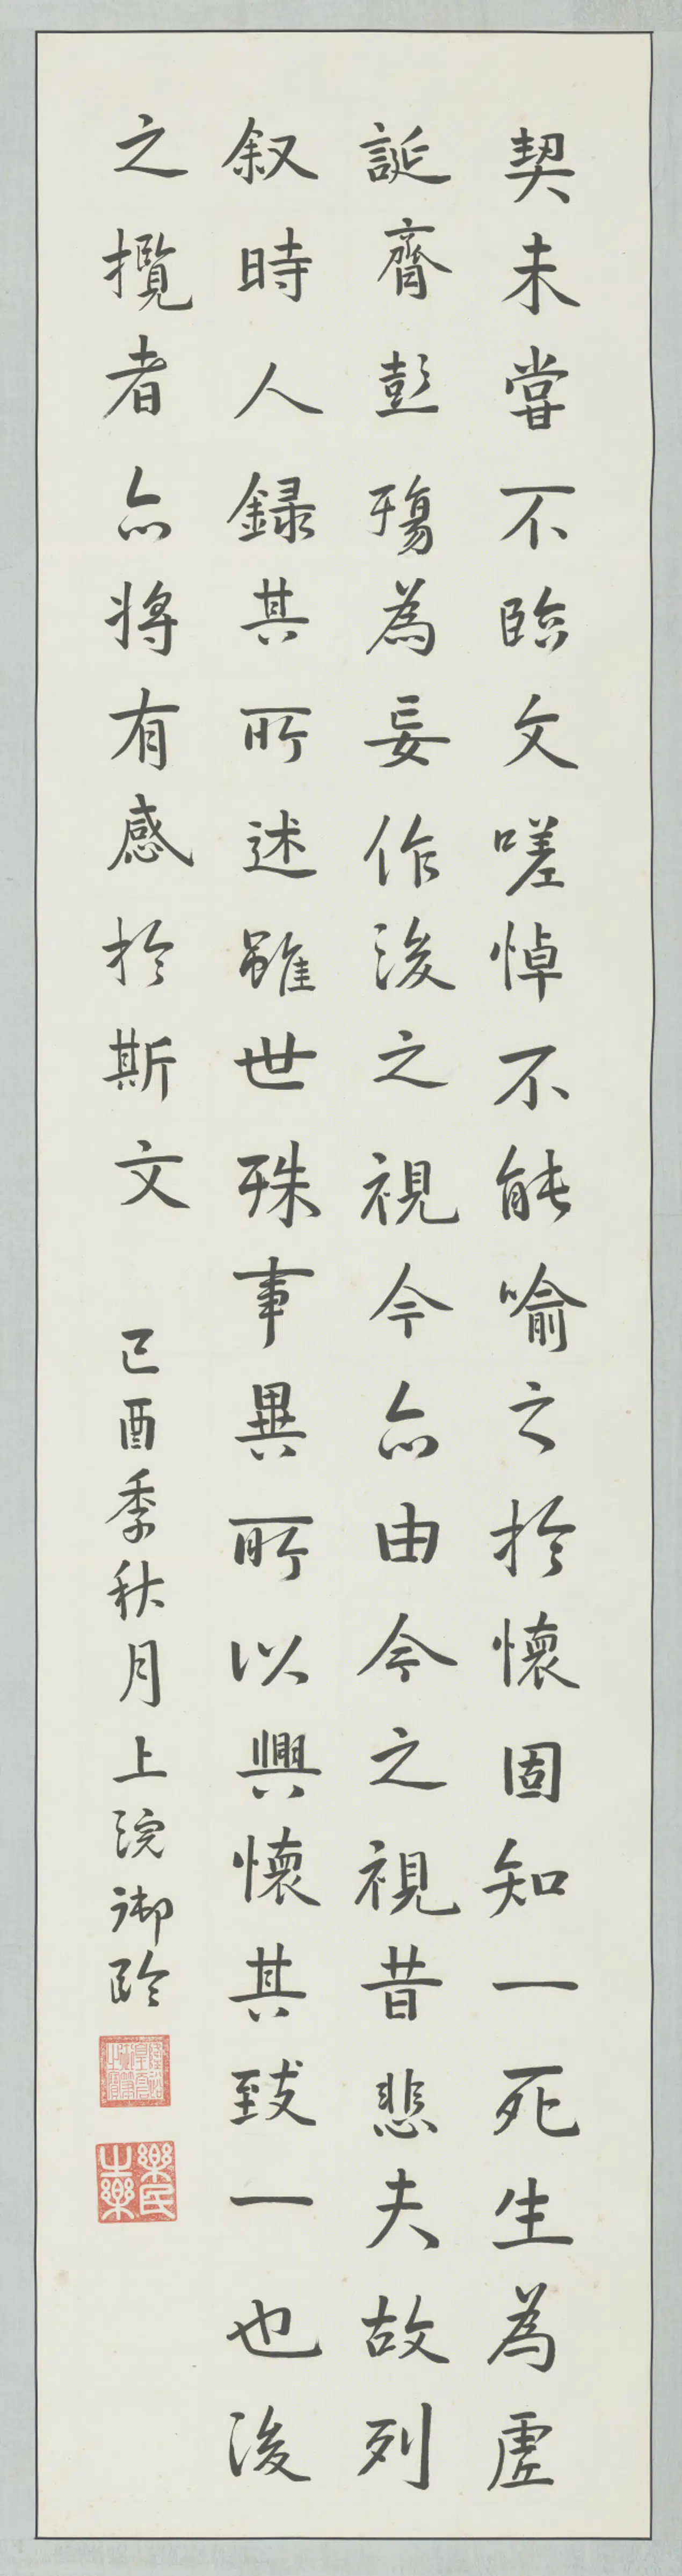 契未嘗不臨文嗟悼不能喻之於懷固知一死生為虛
誕齊彭殤為妄作後之視今亦由今之視昔悲夫故列
叙時人録其所述雖世殊事異所以興懷其致一也後
之攬者亦將有感於斯文
己酉季秋月上浣御臨
樂民之樂